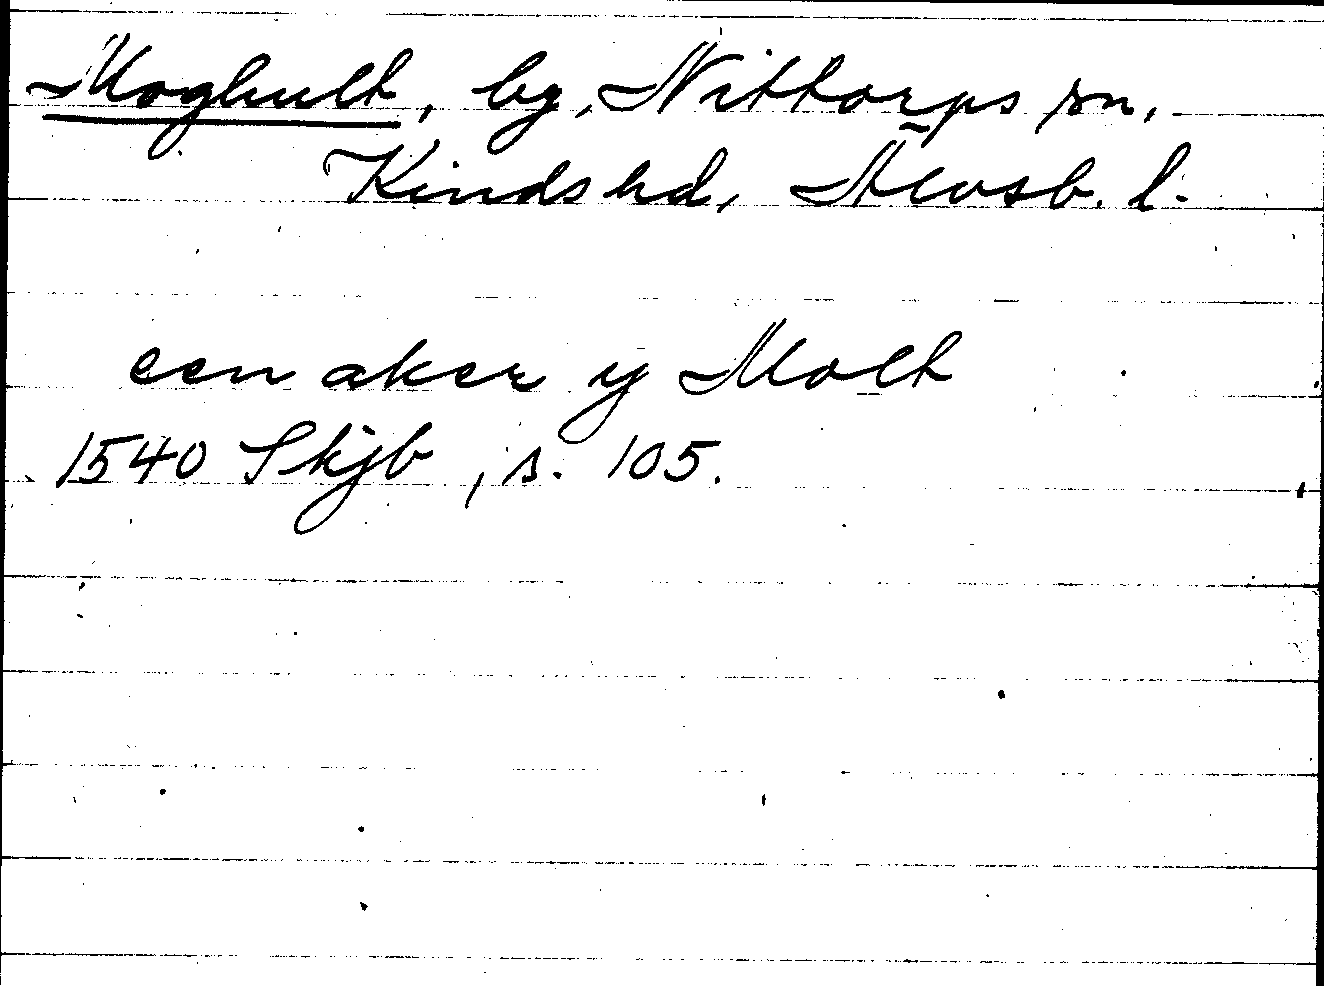 Moghult, by, Nittorps sn,
Kinds hd, Älvsb. l.
een aker y Molt
1540 Skjb, s. 105.